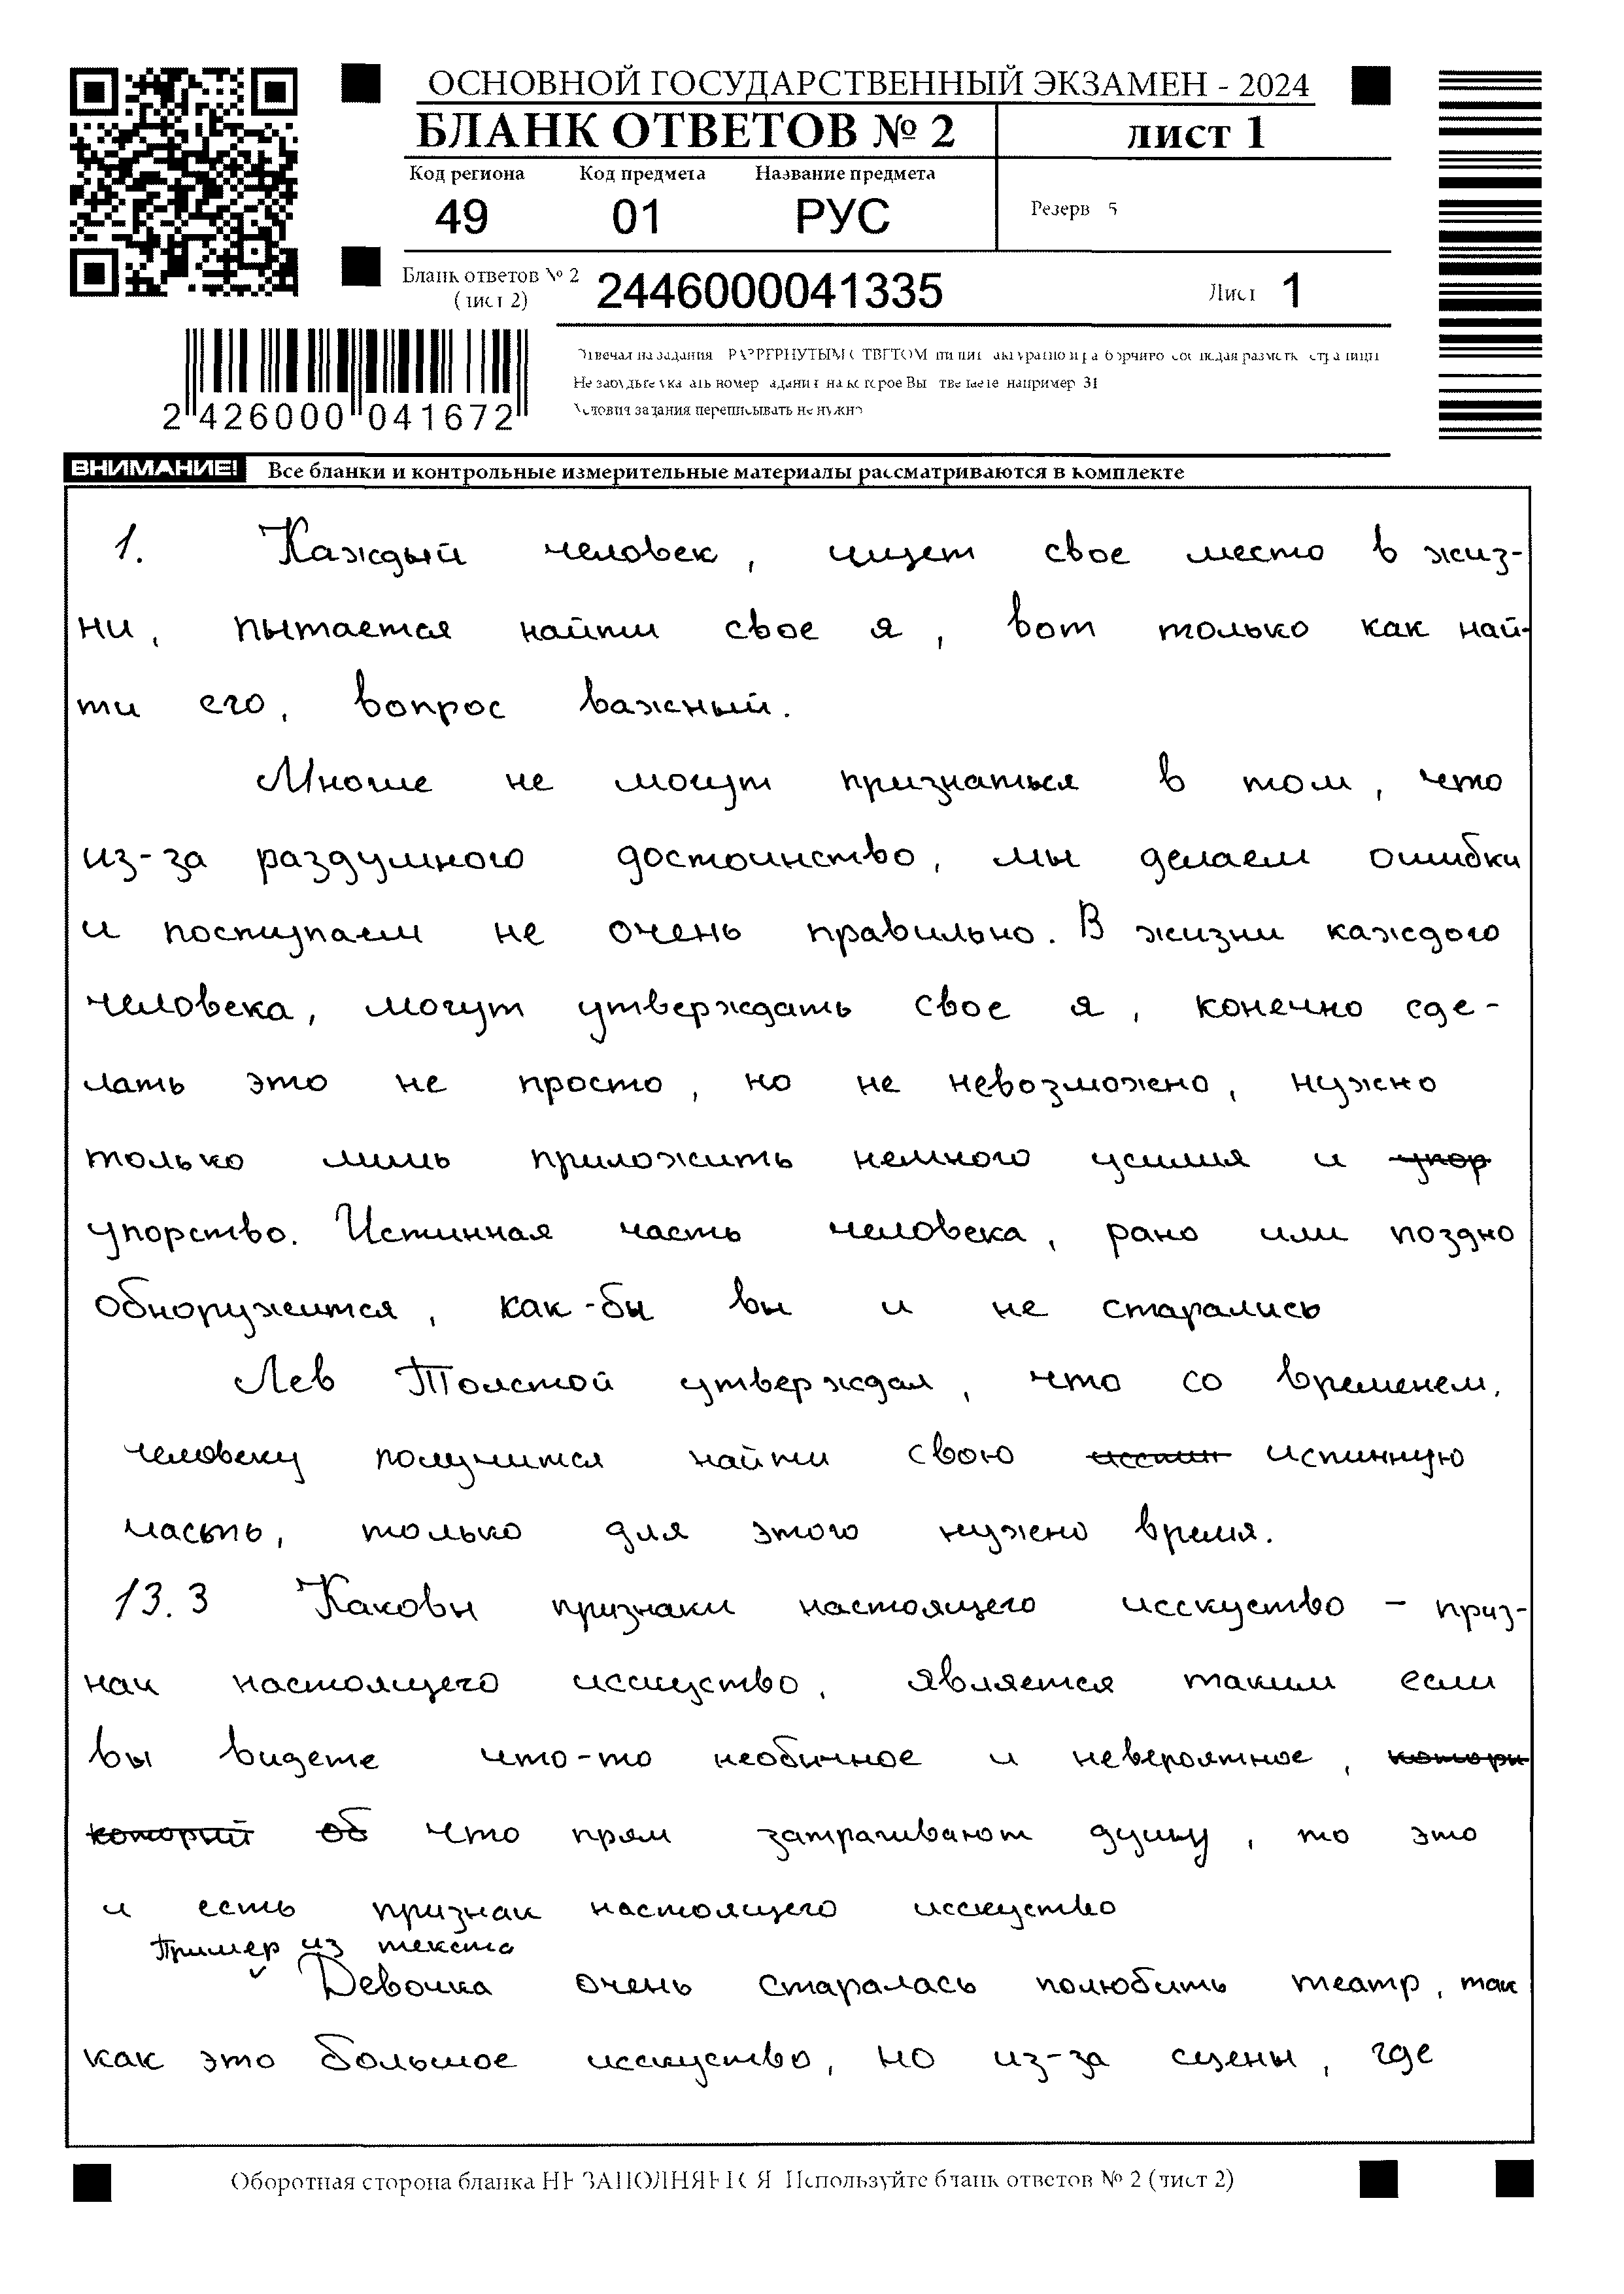 ОСНОВНОЙ ГОСУДАРСТВЕННЫЙ ЭКЗАМЕН - 2024
БЛАНК ОТВЕТОВ № 2 лист 1
Код региона Код предмета Название предмета
49 01 РУС Резерв 5
Бланк ответов № 2
(лист 2) 2446000041335 Лист 1
Не забудьте указать номер задания на которое Вы отвечаете например 31
Условия задания переписывать не нужно
2 426000 041672
ВНИМАНИЕ! Все бланки и контрольные измерительные материалы рассматриваются в комплекте
1. Каждый человек, ищет свое место в жиз-
ни, пытается найти свое я, вот только как най-
ти его, вопрос важный.
Многие не могут признаться в том, что
из-за раздумного достоинство, мы делаем ошибки
и поступаем не очень правильно. В жизни каждого
человека, могут утверждать свое я, конечно сде-
лать это не просто, но не невозможено, нужно
только лишь приложить немного усилия и упор
упорство. Истинная часть человека, рано или поздно
обноружится, как-бы вы и не старались
Лев Толстой утверждал, что со временем,
человеку получится найти свою истинную
часть, только для этого нужено время.
13.3 Каковы признаки настоящего исскуство - приз-
нак настоящего исскуство, является таким если
вы видете что-то необичное и невероятное, котори
который об что прям затрагивают душу, то это
и есть признак настоящего исскуство
Пример из текста
Девочка очень старалась полюбить театр, так
как это большое исскуство, но из-за сцены, где
Оборотная сторона бланка НЕ ЗАПОЛНЯЕТСЯ Используйте бланк ответов № 2 (лист 2)